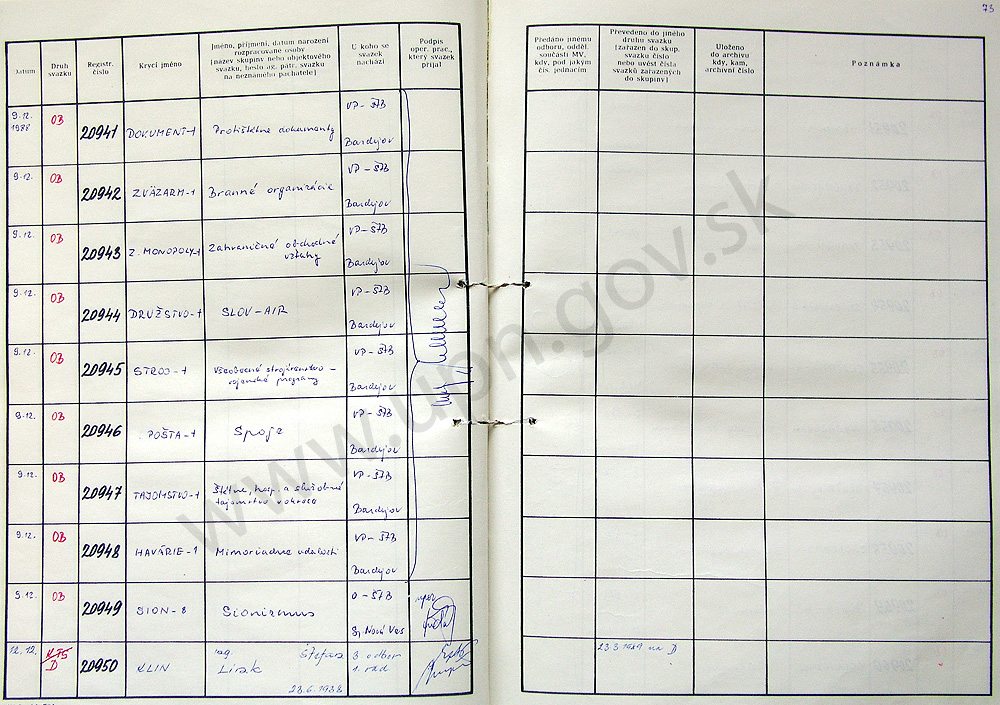 73
Datum
Druh svazku
Registr. číslo
Krycí jméno
Jméno, příjmení, datum narození
rozpracované osoby
[název skupiny nebo objektového
svazku, heslo ag. pátr. svazku
na neznámého pachatele]
U koho se
svazek
nachází
Podpis
oper. prac.,
který svazek
přijal
Předáno jinému
odboru, odděl.
součásti MV,
kdy, pod jakým
čís. jednacím
Převedeno do jiného
druhu svazku
[zařazen do skup.
svazku číslo
nebo uvést čísla
svazků zařazených
do skupiny]
Uloženo
do archivu
kdy, kam,
archivní číslo
Poznámka
9.12. 1988 OB 20941 DOKUMENT-1 Protištátne dokumenty VP-ŠTB Bardejov
9.12. OB 20942 ZVÄZARM-1 Branné organizácie VP-ŠTB Bardejov
9.12. OB 20943 Z. MONOPOLY-1 Zahraničné obchodné vzťahy VP-ŠTB Bardejov
9.12. OB 20944 DRUŽSTVO-1 SLOV-AIR VP-ŠTB Bardejov
9.12. OB 20945 STROJ-1 Všeobecné strojárenstvo - vojenské programy VP-ŠTB Bardejov
9.12. OB 20946 POŠTA-1 Spoje VP-ŠTB Bardejov
9.12. OB 20947 TAJOMSTVO-1 Štátne, hosp. a služobné tajomstvo v okrese VP-ŠTB Bardejov
9.12. OB 20948 HAVÁRIE-1 Mimoriadne udalosti VP-ŠTB Bardejov
9.12. OB 20949 SION-8 Sionizmus O-ŠTB Sp. Nová Ves
12.12. D 20950 KLIN ing. Štefan 23.6.1938 3. odbor 1. rad 23.3.1989 na D
www.upn.gov.sk